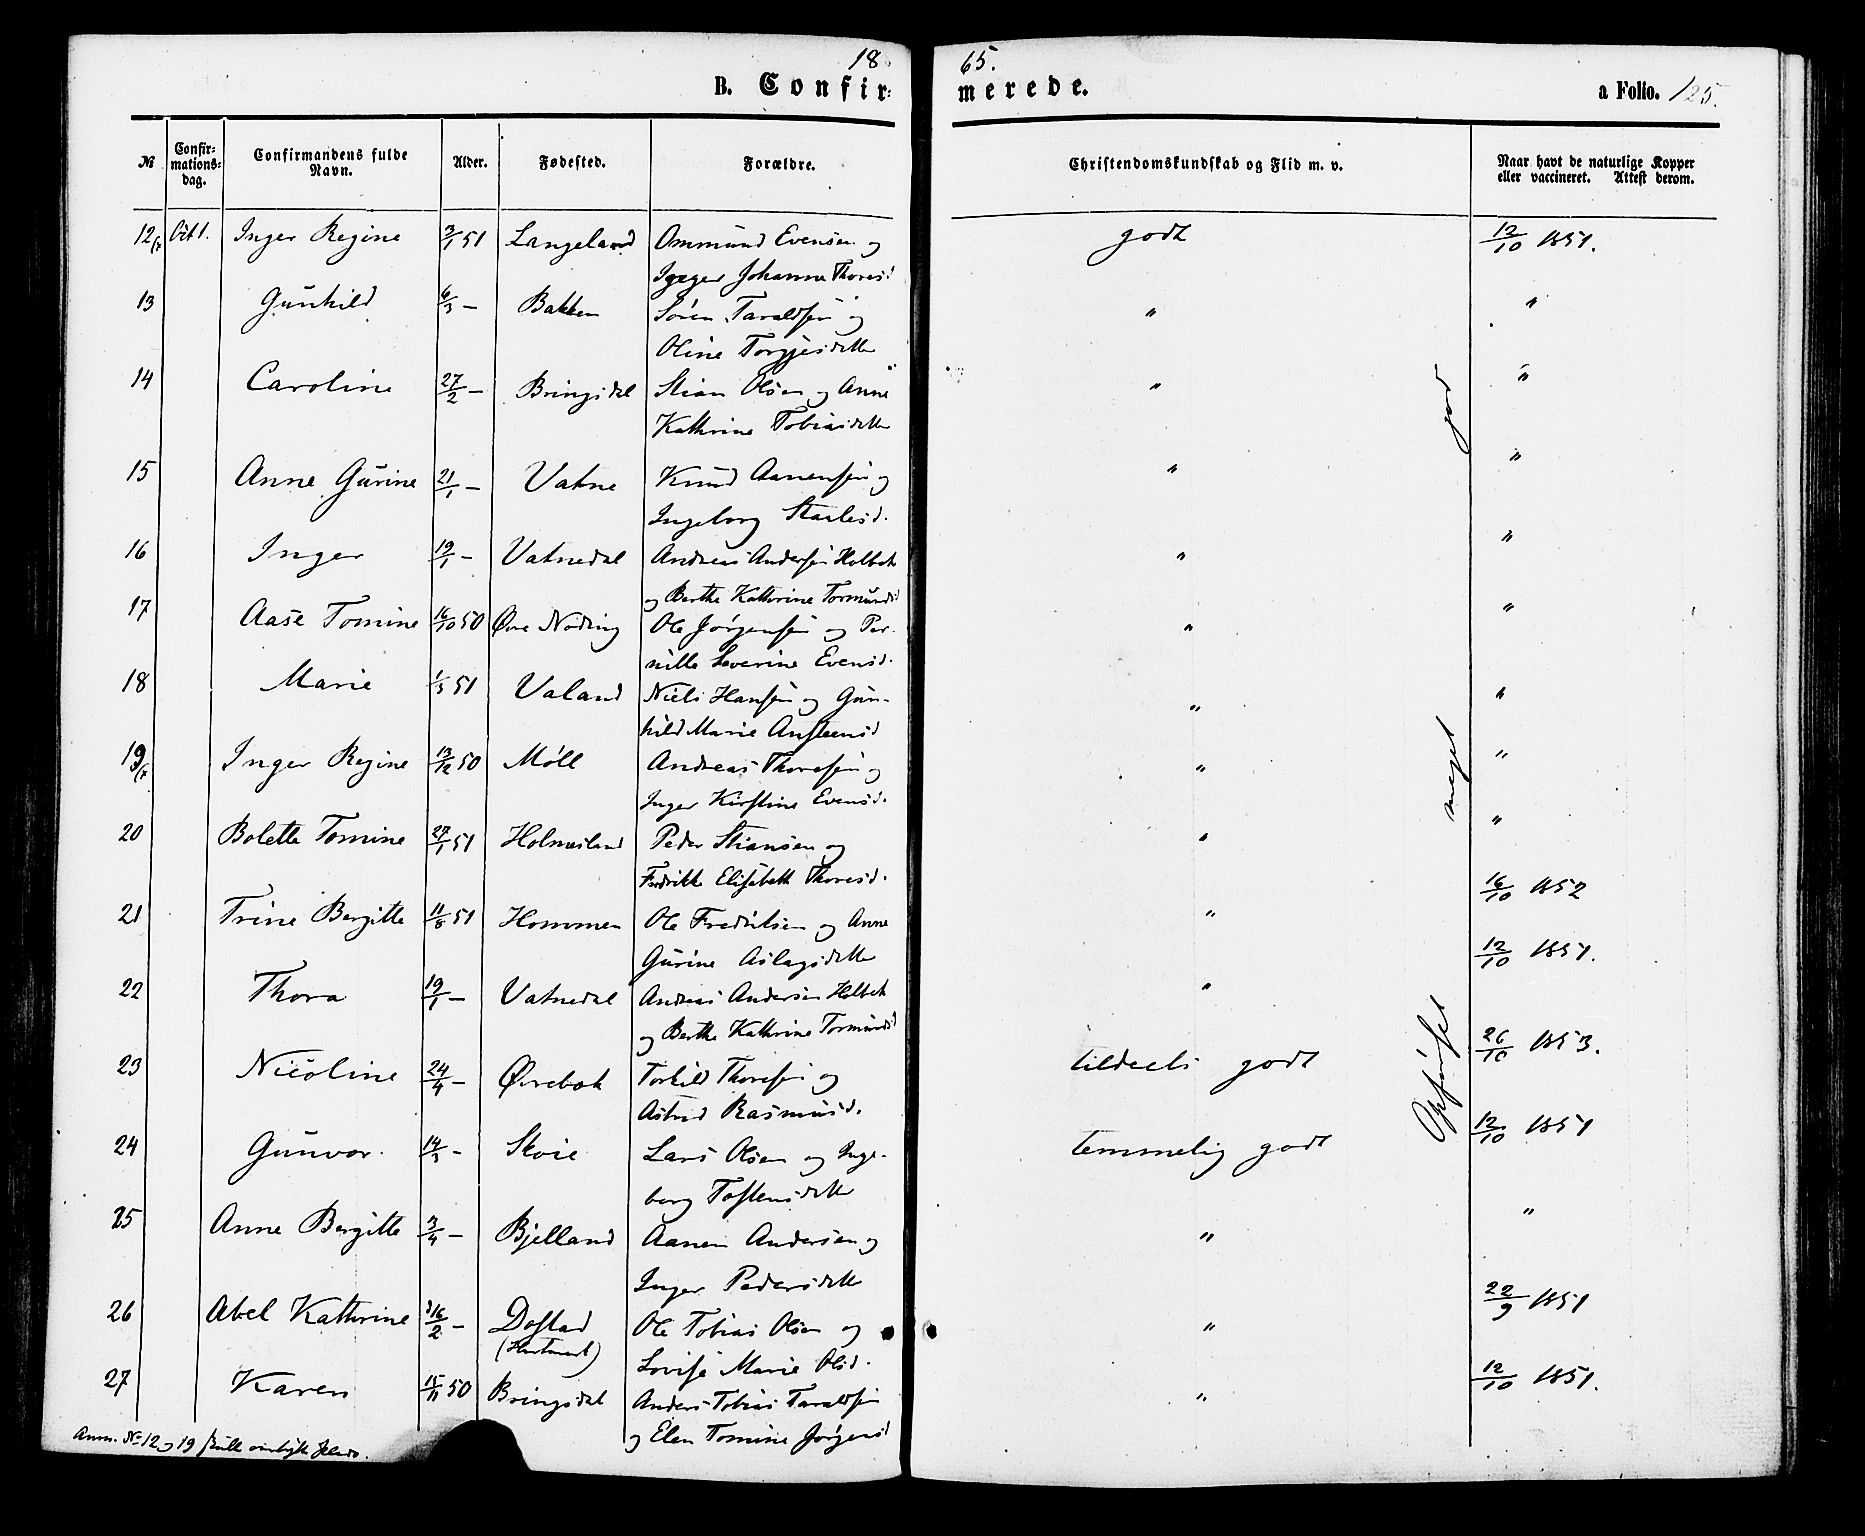 18 65.
B. Confir= merede. a Folio. 125.
№ Confir=mations=dag. Confirmandens fulde Navn. Alder. Fødested. Forældre. Christendomskundskab og Flid m. v. Naar havt de naturlige Kopper eller vaccineret. Attest derom.
12 Oct 1. Inger Regine 3/1 51 Langeland Ommund Evensen og godt 12/10 1851.
Inger Johanne Thoresd
13 Gunhild 6/3 — Bakken Søren Taraldsen og " "
Oline Torgjesdatter
14 Caroline 27/2 — Bringsdal Stian Olsen og Anne " "
Kathrine Tobiasdatter
15 Anne Gurine 21/1 — Vatne Knud Aanensen og " "
Ingeborg Staalesd.
16 Inger 19/1 — Vatnedal Andreas Andersen Holbek " "
og Berthe Kathrine Tormundsd
17 Aase Tomine 16/10 50 Øvre Noding Ole Jørgensen og Per- " "
nille Severine Evensd.
18 Marie 1/3 51 Valand Niels Hansen og Gun- " "
hild Marie Austeensd
19 Inger Regine 13/12 50 Møll Andreas Thoresen og " "
Inger Kirstine Evensd.
20 Bolette Tomine 27/1 51 Holmesland Peder Stiansen og " "
Fredrikke Elisabeth Thoresd.
21 Trine Bergitte 11/8 51 Hommen Ole Fredriksen og Anne " 16/10 1852
Gurine Aslagsdatter
22 Thora 19/1 — Vatnedal Andreas Andersen Holbek " 12/10 1851.
og Berthe Kathrine Tormundsd
23 Nicoline 24/4 — Øvrebøk Torkild Thoresen og tildeels godt 26/10 1853.
Astrid Rasmusd.
24 Gunvor 14/3 — Skoie Lars Olsen og Inge- temmelig godt 12/10 1851
borg Tostensdatter
25 Anne Bergitte 3/4 — Bjelland Aanen Andersen og " "
Inger Pedersdatter
26 Abel Kathrine 16/2 — Dostad Ole Tobias Olsen og " 22/9 1851
(Hartmark) Lovise Marie Olsd.
27 Karen 15/11 50 Bringsdal Anders Tobias Taraldsen " 12/10 1851.
og Elen Tomine Jørgensd
Opførsel meget god
Anm. No 12 og 19